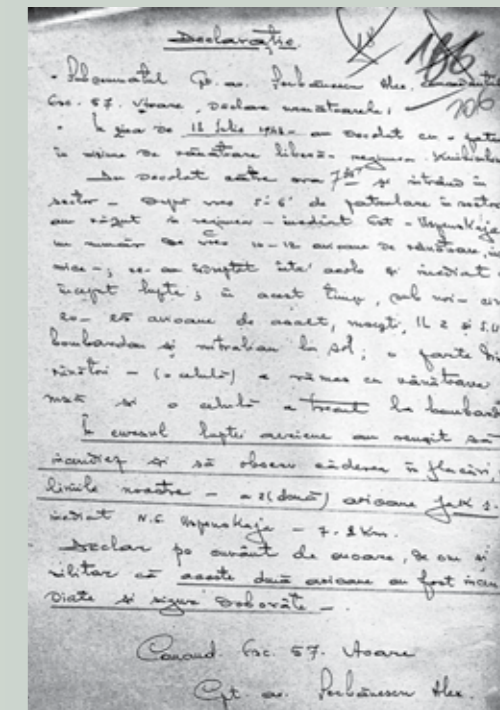 Declarație.
186
106
- Subsemnatul Cpt. av. Șerbănescu Alex. comandantul
Esc. 57. Vtoare, declar următoarele:
- În ziua de 18 Iulie 1943 - am decolat cu o patru
în misiune de vânătoare liberă - regiunea
Am decolat către ora 7 și intrând în
sector - după vreo 5-6' de patrulare în sector
am văzut în regiunea - imediat Est - Uspenskaja
un număr de vreo 10-12 avioane de vânătoare,
ne-am îndreptat acolo și imediat
început lupte; în acest timp, sub noi -
20-25 avioane de asalt, IL 2 și
bombardau și mitraliau la sol; o parte
vânători - (o celulă) a rămas cu vânătoarea
și o celulă a trecut la
În cursul luptei aeriene am reușit să
incendiez și să observ căderea în flăcări,
liniile noastre - a 2 (două) avioane Jak 1.
imediat N.E. Uspenskaja - 7. 8 Km.
Declar pe cuvânt de onoare, de om și
militar că aceste două avioane au fost incen
diate și sigur doborâte -
Comand. Esc. 57. Vtoare
Cpt. av. Șerbănescu Alex.